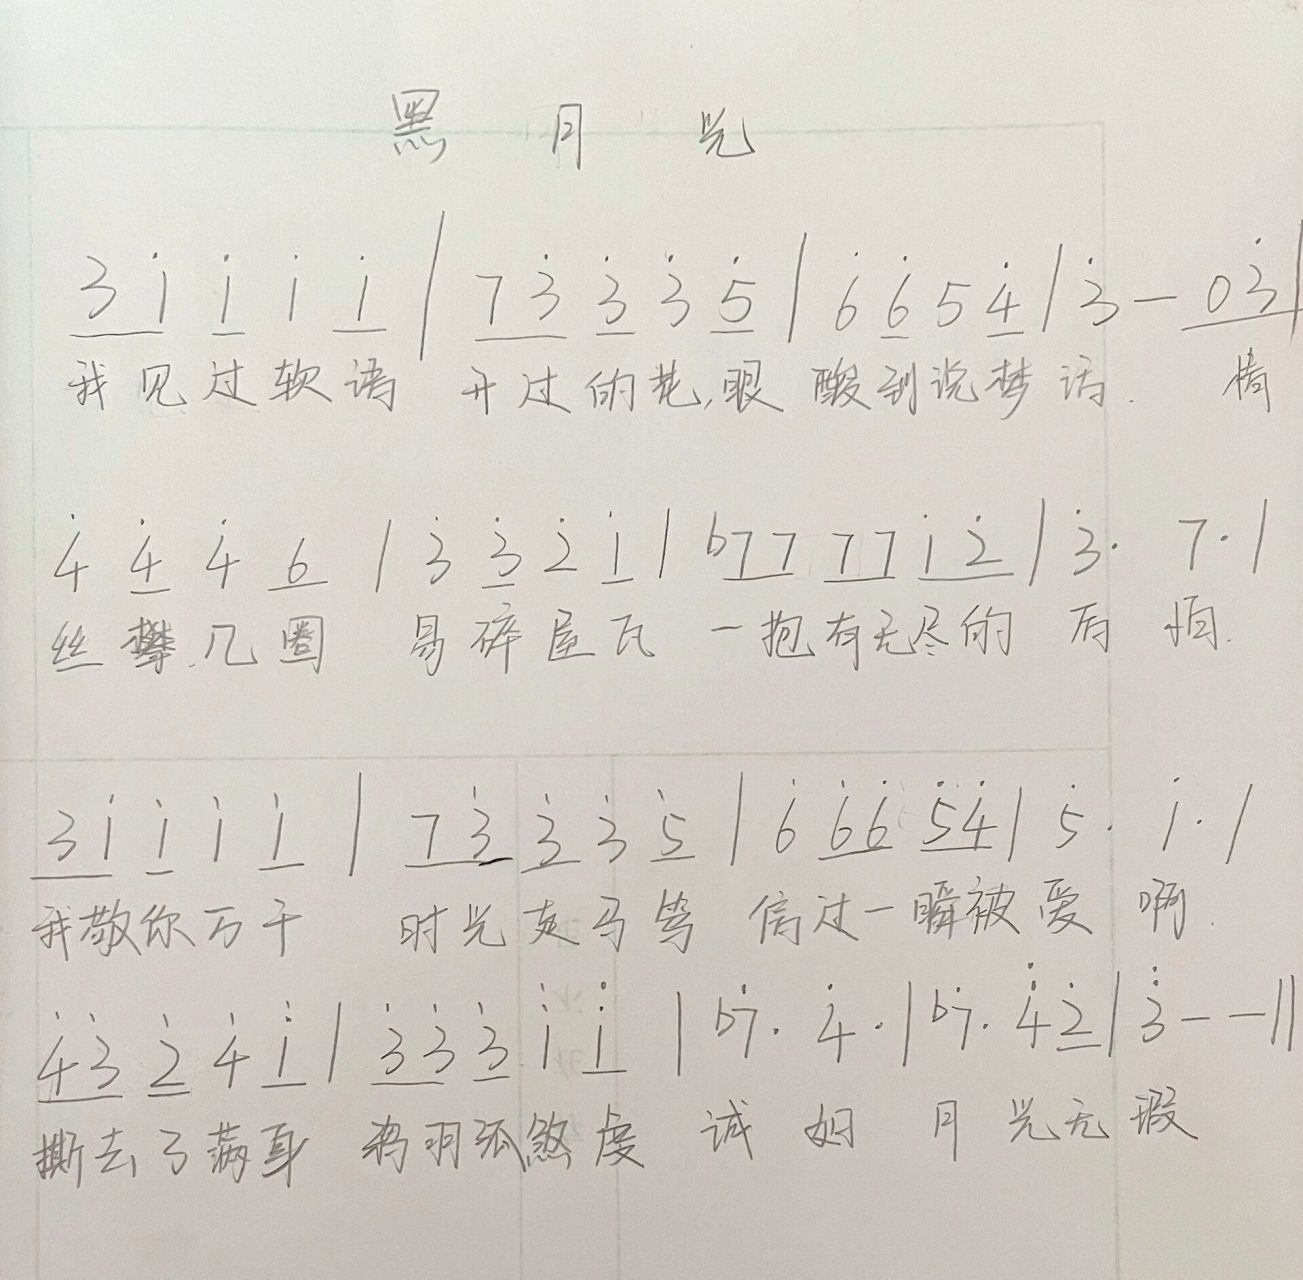 黑月光
3 i i i i | 7 3̇ 3̇ 3̇ 5̇ | 6̇ 6̇ 5 4̇ | 3̇ — 0 3̇ |
我见过软语 开过的花,眼 酸到说梦话. 情
4̇ 4̇ 4̇ 6 | 3̇ 3̇ 2̇ i | b7 7 7 7 i 2̇ | 3̇· 7· |
丝攀.几圈 易碎屋瓦 一抱有无尽的 后怕.
3 i i i i | 7 3̇ 3̇ 3̇ 5̇ | 6̇ 6̇ 6̇ 5̇ 4̇ | 5̇· i· |
我敬你万千 时光 笃 信过一瞬被爱 啊.
4̇ 3̇ 2̇ 4̇ i | 3̇ 3̇ 3̇ i i | b7̇· 4̇· | b7̇· 4̇ 2̇ | 3̇ - - ||
撕去了满身 鸦羽孤煞 虔 诚 如 月 光无瑕